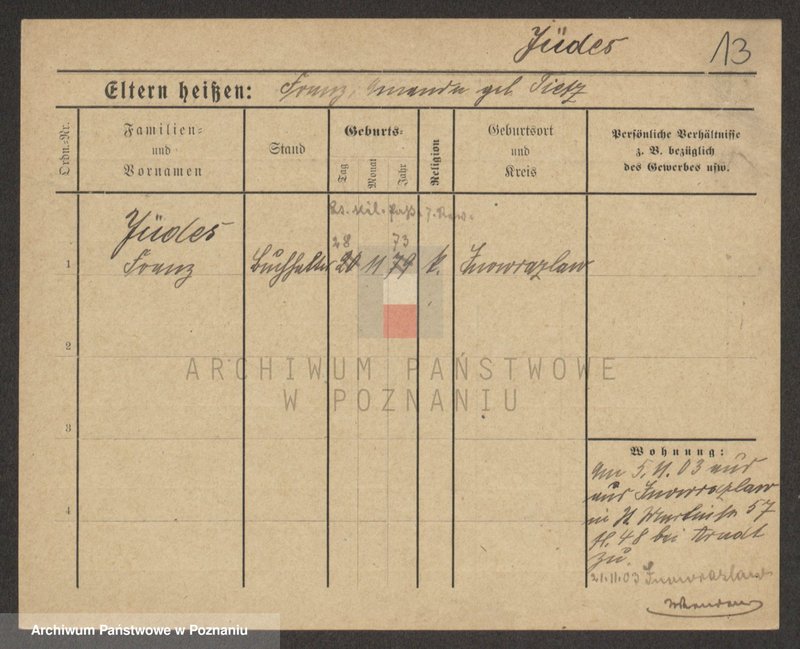 Jüdes 13
Eltern heißen: Franz, Amanda geb. Tietz
Ordn.-Nr.
Familien- und Vornamen
Stand
Geburts-
Tag Monat Jahr
Religion
Geburtsort und Kreis
Persönliche Verhältnisse
z. B. bezüglich
des Gewerbes usw.
Mil. Paß
28 73
Jüdes
1 Franz Buchhalter 20 11 79 k. Inowrazlaw
2
3
4
Wohnung:
Am 5. 11. 03
aus Inowrazlaw
57
48 bei Arndt
zu.
21.11.03 Inowrazlaw
ARCHIWUM PAŃSTWOWE
W POZNANIU
Archiwum Państwowe w Poznaniu